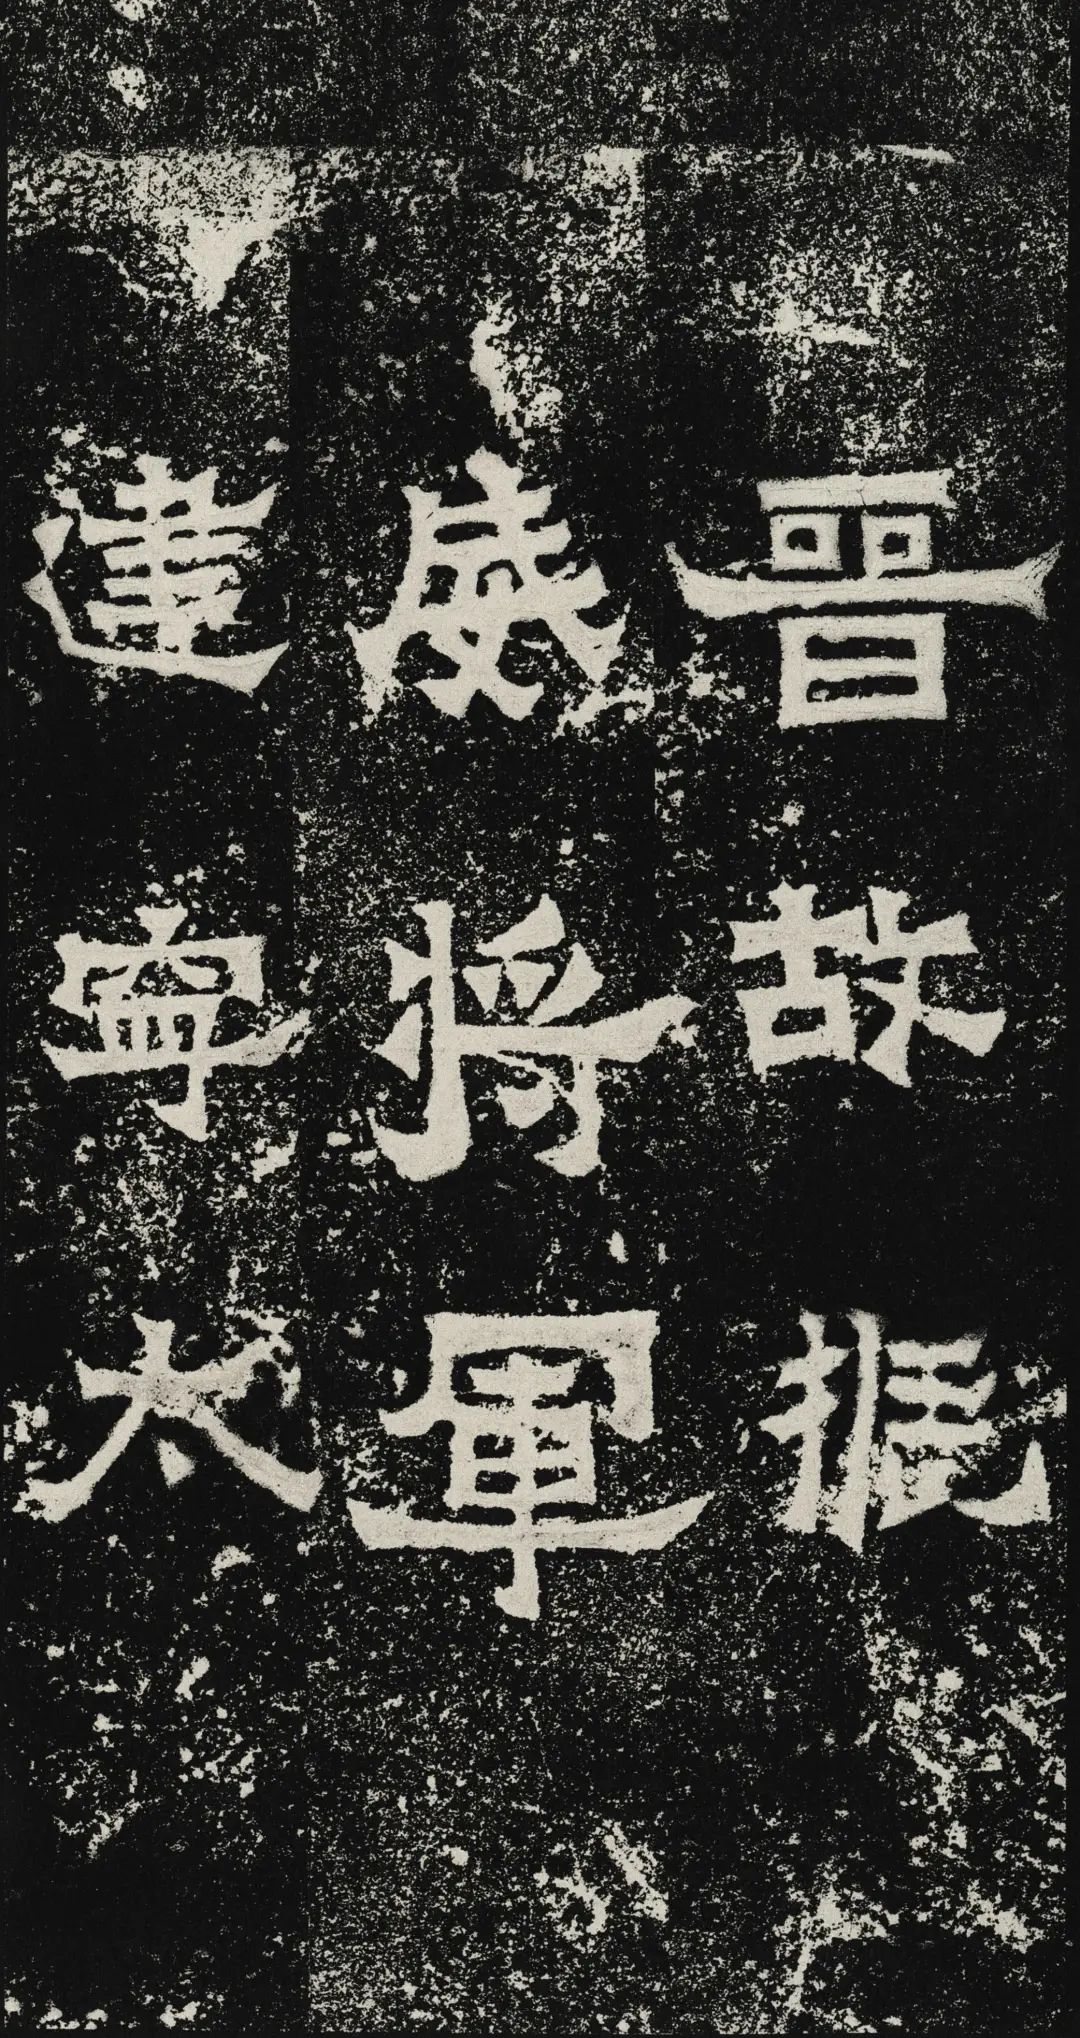 晉故振
威將軍
建寧太